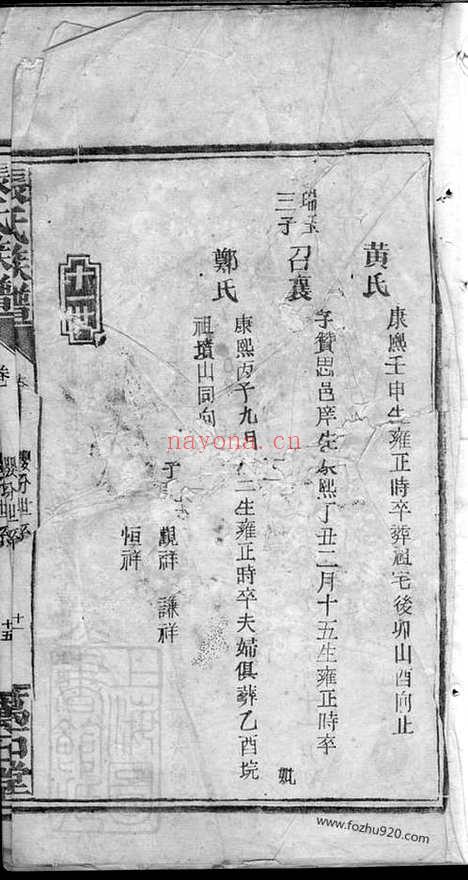 黄氏
康熙壬申生雍正時卒葬祖宅後卯山酉向止
瑞玉
三子
召襄
字贊思邑庠生康熙丁丑二月十五生雍正時卒
妣
鄭氏
康熙丙子九月初二生雍正時卒夫婦俱葬乙酉垸
祖墳山同向
子
觀祥 謙祥
恒祥
十四
張氏族譜
卷
十五
萬石堂
nayona.cn
www.fozhu920.com